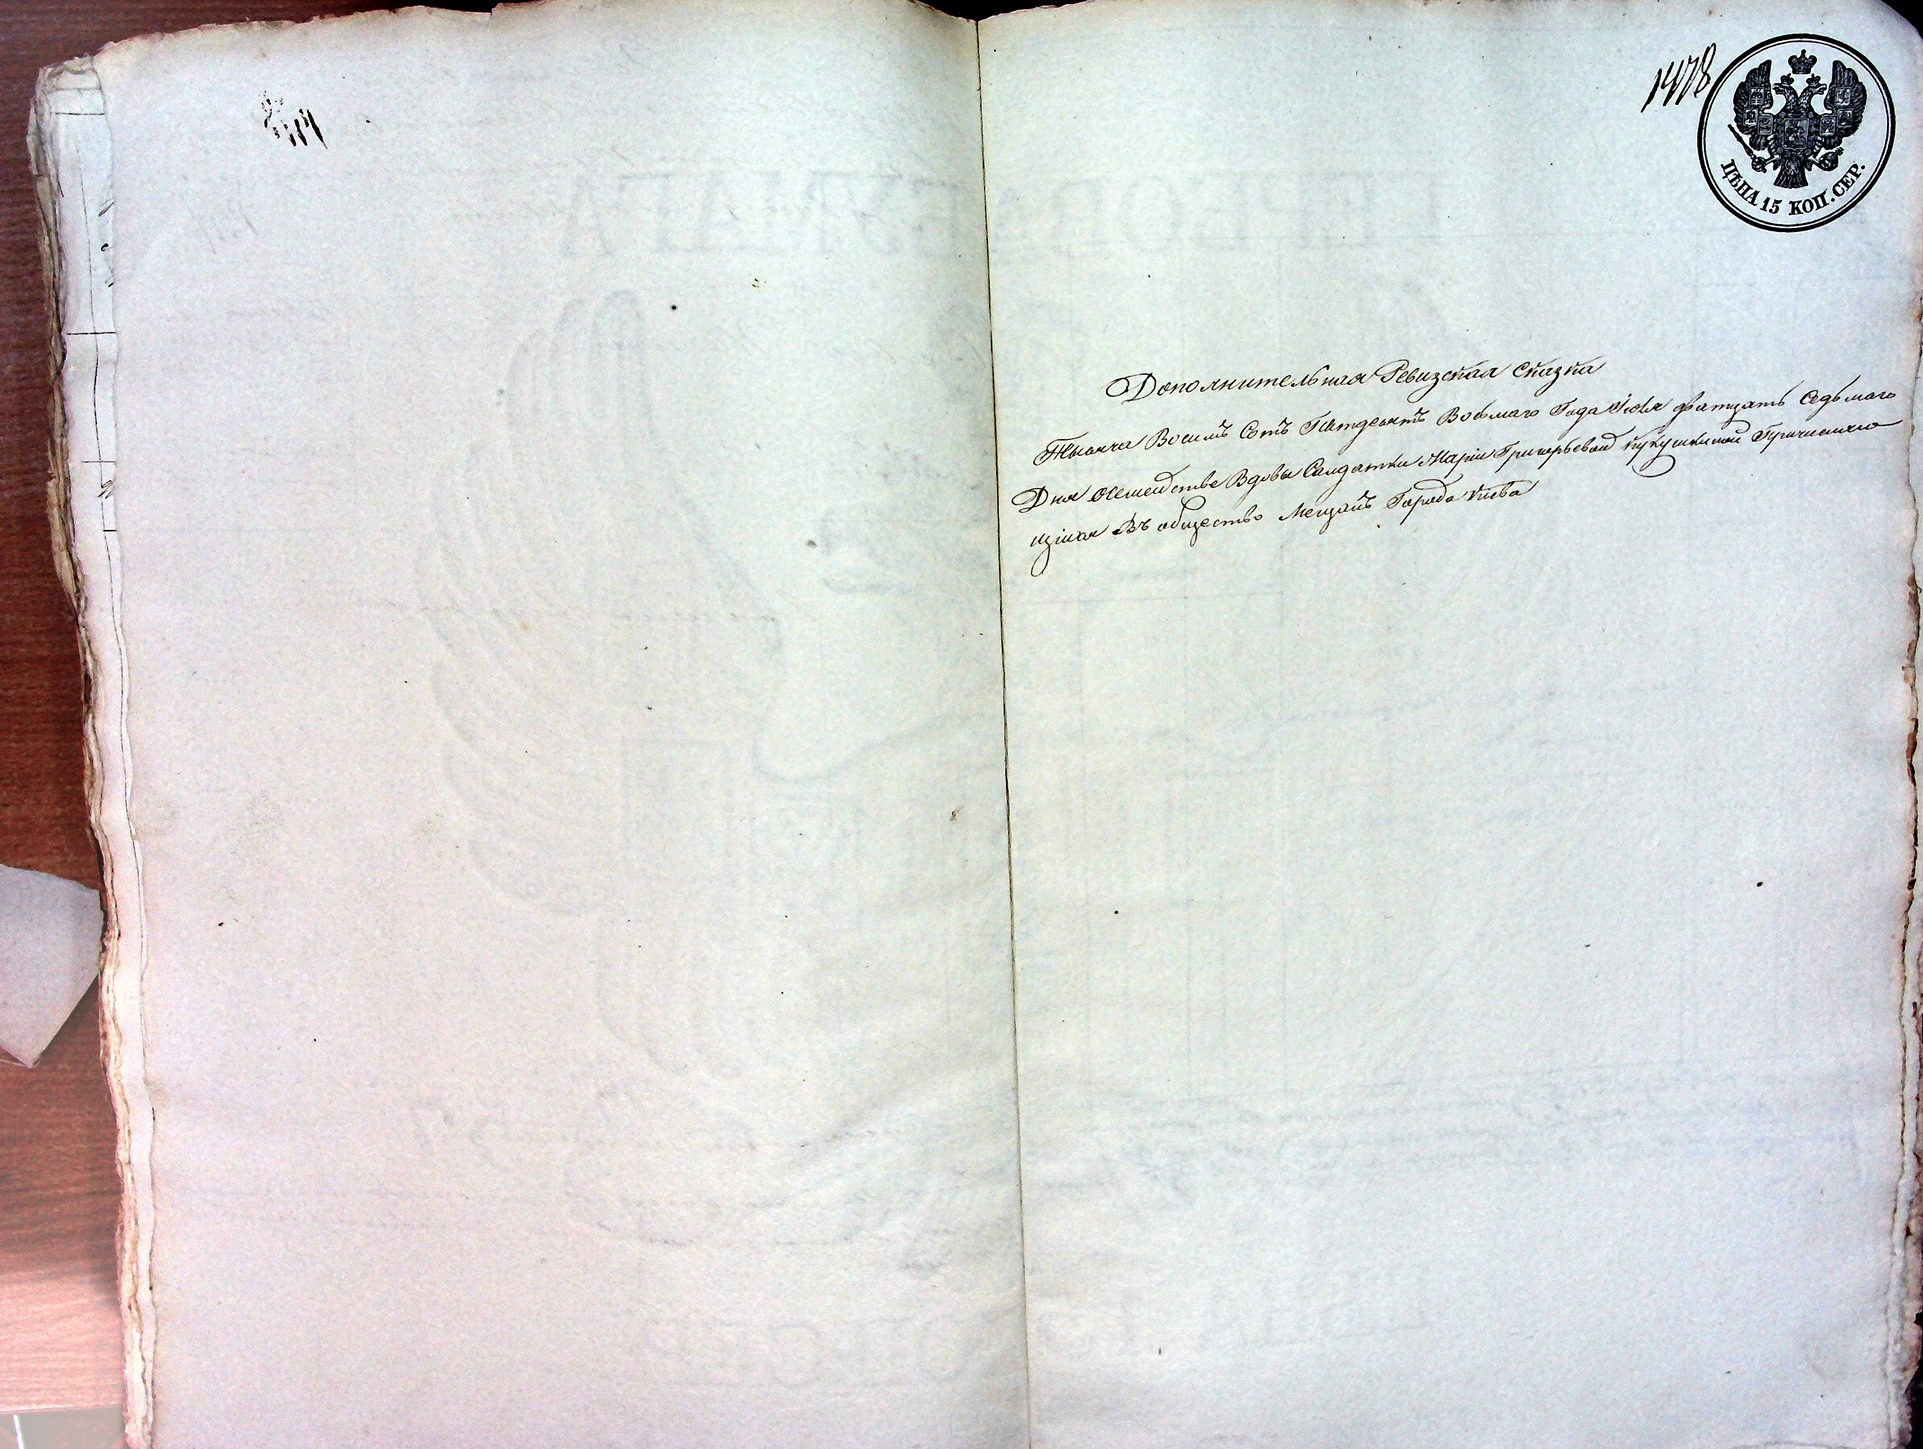 1478
ЦѢНА 15 КОП. СЕР.
Дополнительная Ревизская Сказка
Тысяча Восимъ Сотъ Пятдесятъ Восьмаго Года Іюля дватцать Седьмаго
Дня о семействе Вдовы Салдатки Маріи Григорьевой Кукушкиной
щіися Въ общество Мещанъ Города Кіева